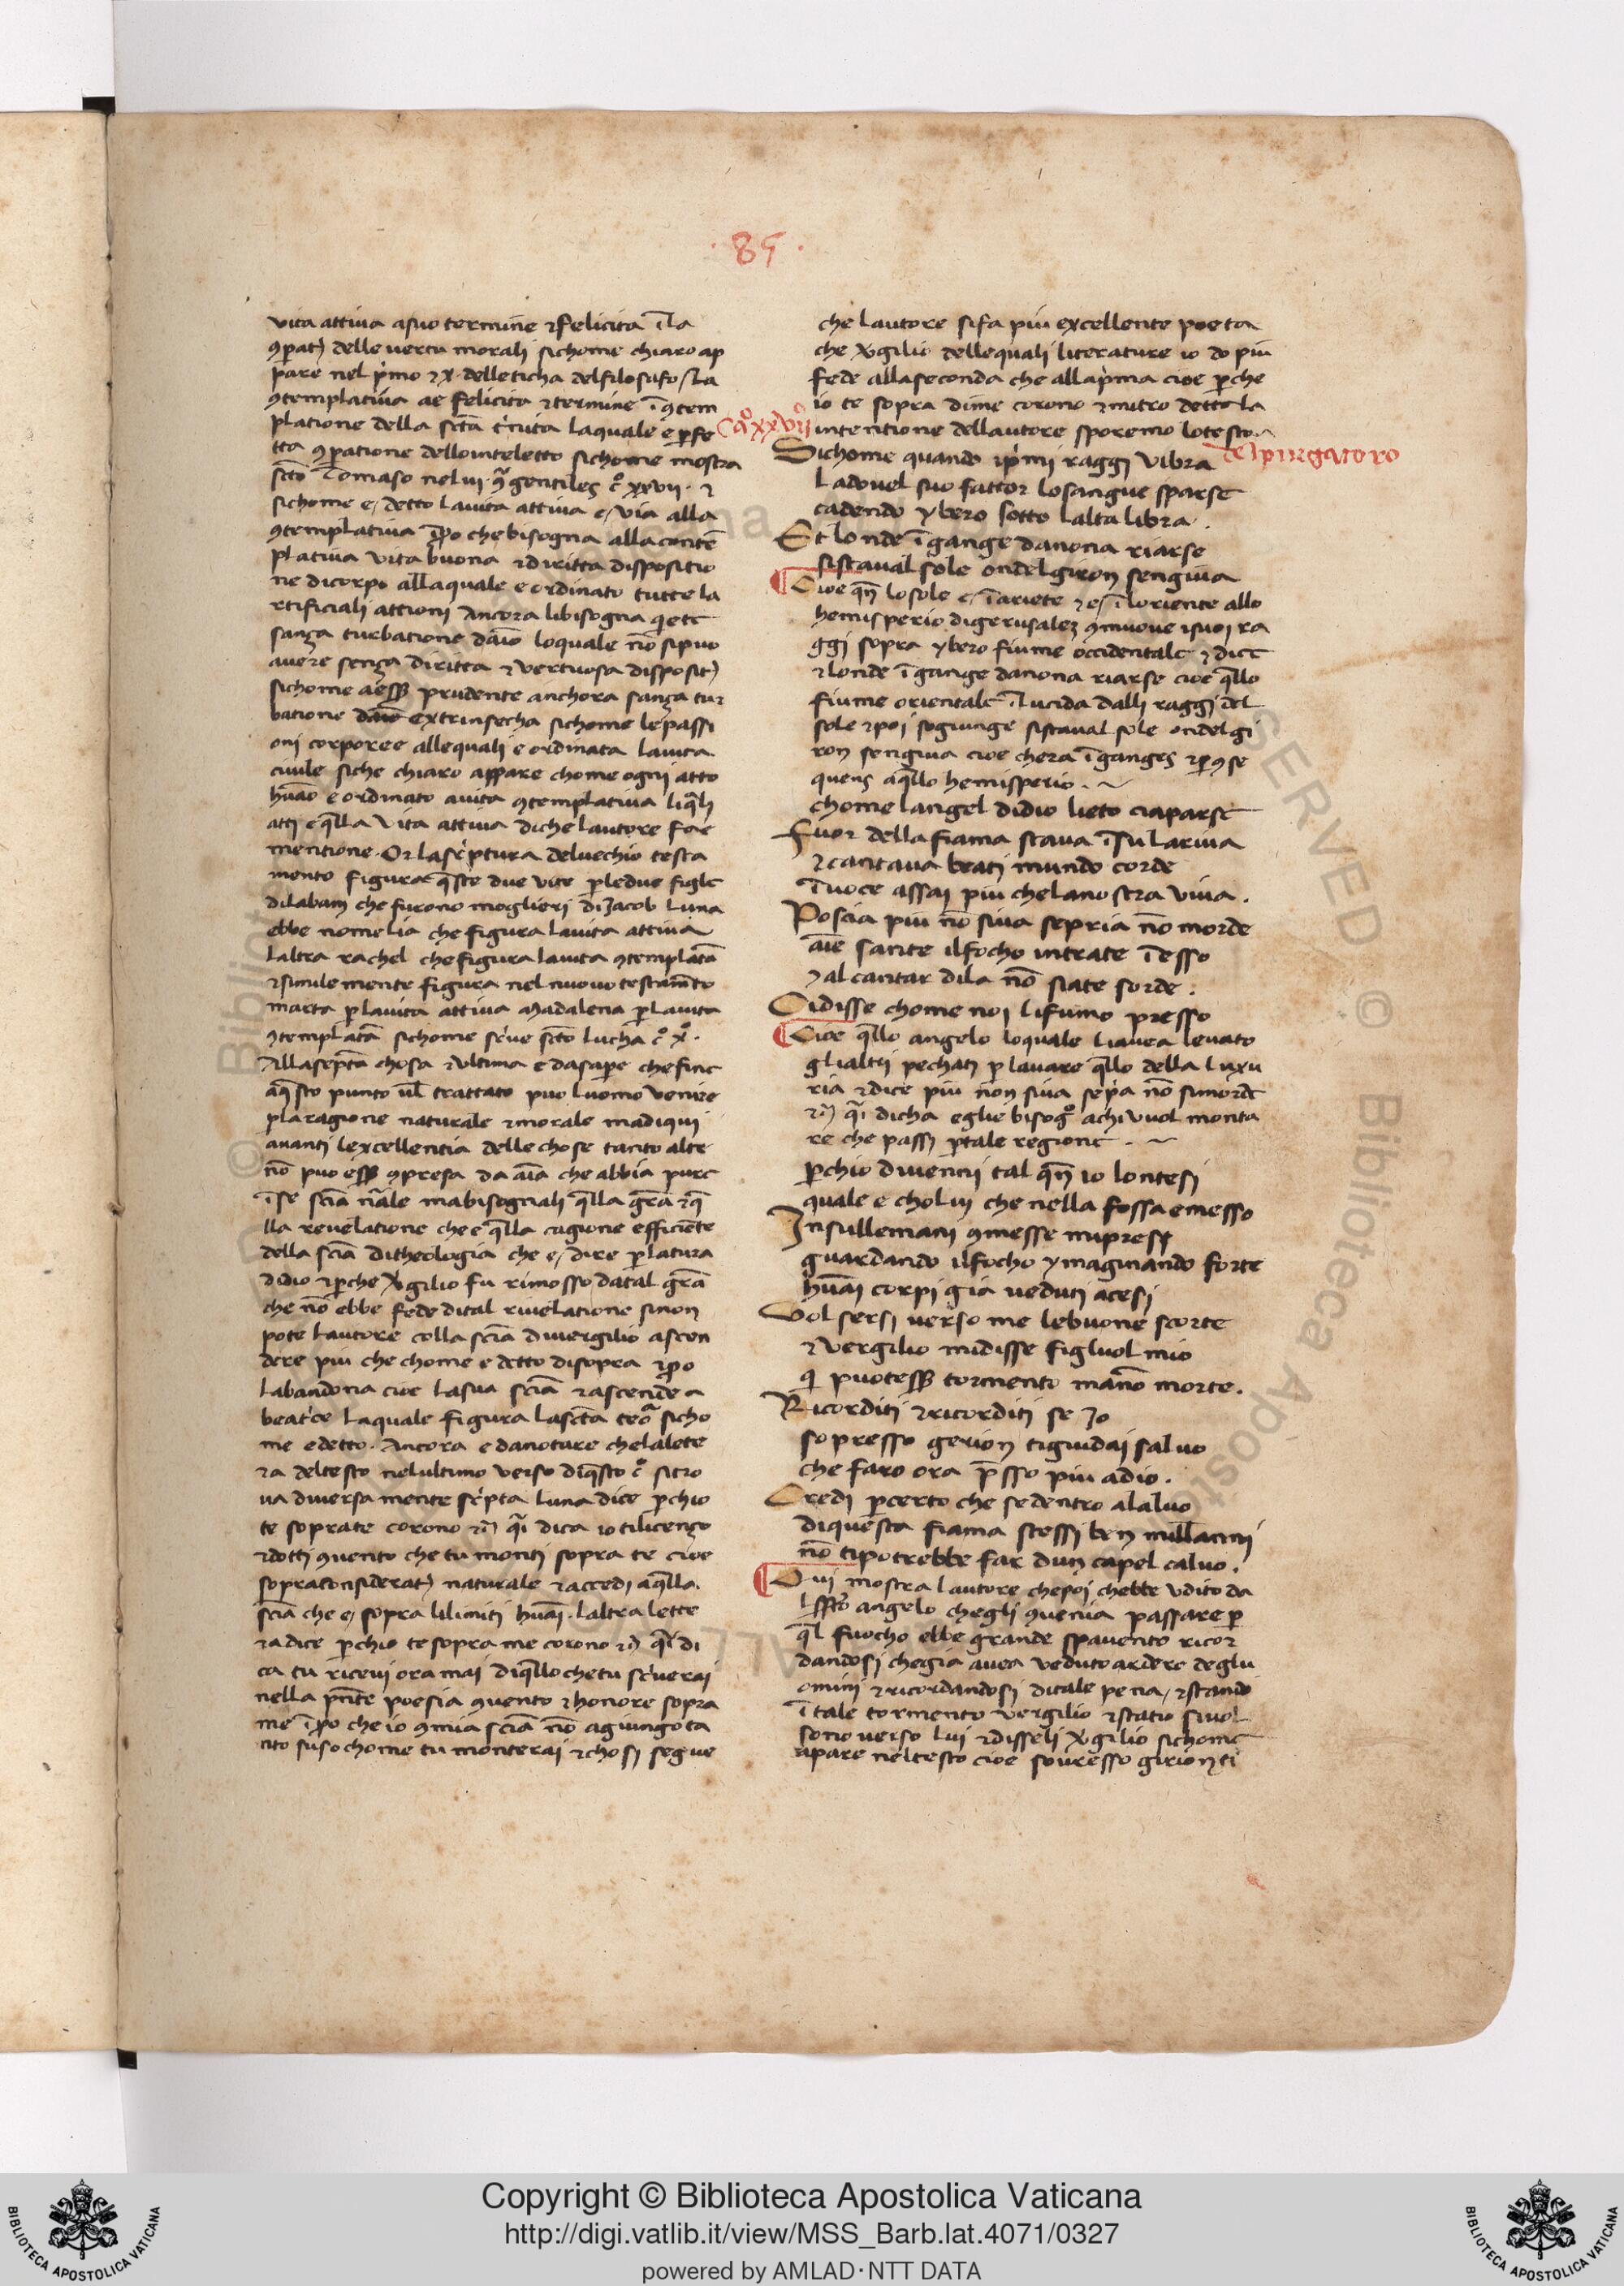 · 85 ·
vita attiva a suo termine & felicita ĩ la
ꝯpat) delle vertu morali sichome chiaro ap
pare nel p̓mo & x · delleticha del filosafo / La
ꝯtemplativa ae felicita & termine ĩ ꝯtem
platione della sc̃ta t̓nita laquale e ꝑfe
tta ꝯꝑatione dellointeletto sichome mostra
sc̃to Tomaso nel vi · ꝯ̃ gentiles c̊ xxvii · &
sichome e / detto la vita attiva e / via alla
ꝯtemplativa ĩꝑo che bisogna alla contẽ
plativa vita buona & diritta dispositio
ne di corpo alla quale e ordinato tutte la
rtificiali attioni Ancora li bisogna qete
sanza turbatione daĩo loquale nõ si puo
avere senza diritta & vertuosa disposit)
sichome aeẞ prudente anchora sanza tur
batione daĩo extrinsecha sichome le passi
oni corporee alle quali e ordinata la vita
civile siche chiaro appare chome ogni atto
hũao e ordinato a vita ꝯtemplativa li q̃li
atti e q̃lla vita attiva di che lautore fae
mentione · Or la sc̓ptura del vechio testa
mento figura q̃ste due vite ꝑ le due figle
di labam che furono moglieri di Jacob Luna
ebbe nome lia che figura la vita attiva
Laltra rachel che figura la vita ꝯtemplatã
& simile mente figura nel nuovo testam̃to
marta ꝑ la vita attiva Madalena ꝑ la vita
ꝯtemplatã sichome sc̓ve sc̃to Lucha c̊ x̊ ·
Alla septã chosa & ultima e da saꝑe che fine
a q̃sto punto nel trattato puo luomo venire
ꝑ la ragione naturale & morale ma di qui
avanti lexcellentia delle chose tanto alte
nõ puo eẞ ꝯpresa da aĩa che abbia pure
ĩ se sciã nãle ma bisognali q̃lla grã & q̃
lla revelatione che e q̃lla cagione efficiẽte
della sciã di theologia che e / dire ꝑlatura
didio & ꝑche Vgilio fu rimosso da tal grã
che nõ ebbe fede di tal rivelatione sinon
pote lautore colla sciã di vergilio ascen
dere piu che chome e detto di sopra & ꝑo
labandona cioe la sua sciã & ascende a
beatr̓ce laquale figura la sc̃ta teo̊ sicho
me e detto · Ancora e da notare che la lete
ra del testo nel ultimo verso di q̃sto c̊ si tro
va diversa mente sc̓pta Luna dice ꝑchio
te sopra te corono &c̃ q̃i dica io ti licenzo
& dotti ꝯvento che tu monti sopra te cioe
sopra considerat) naturale & accedi a q̃lla
sciã che e / sopra li limiti hũai · Laltra lette
ra dice ꝑchio te sopra me corono &c̃ q̃i di
ca tu ricevi ora mai di q̃llo che tu sc̓verai
nella pñte poesia ꝯvento & honore sopra
me ĩꝑo che io ꝯ mia sciã nõ agiungo ta
nto suso chome tu monterai & chosi segue
che lautore si fa piu excellente poeta
che Vgilio delle quali literature io do piu
fede alla seconda che alla p̓ma cioe ꝑche
io te sopra di me corono & mitro detto la
intentione dellautore sporemo lo testo
Cå xxvii̊ del purgatoro
Sichome quando i p̓mi raggi vibra
La dovel suo fattor lo sangue sparse
cadendo ybero sotto lalta libra ·
Et londe ĩ gange da nona riarse
si stava il sole ondel giron sen giva
Cioe qñ lo sole e / ĩ ariete & e / ĩ loriente allo
hemisperio di gerusalez ꝯmuove i suoi ra
ggi sopra ybero fiume occidentale & dice
& londe ĩ gange da nona riarse cioe q̃llo
fiume orientale ĩ lucida dalli raggi del
sole & poi sogiunge si stava il sole ondel gi
ron sen giva cioe chera ĩ ganges & ꝑ ꝯse
quens a q̃llo hemisperio · ~
chome langel didio lieto ci aparse
Fuor della fiama stava ĩ su la riva
& cantava beati mundo corde
ĩ voce assai piu che la nostra viva ·
Poscia piu nõ si va se pria nõ morde
aĩe sante il focho intrate ĩ esso
& al cantar di la nõ siate sorde ·
Ci disse chome noi li fumo presso
Cioe q̃llo angelo loquale li avea levato
gli altri pechati ꝑ lavare q̃llo della luxu
ria & dice piu non si va se p̓a nõ si morde
&c̃ q̃i dicha egli e bisog̊ a chi vuol monta
re che passi ꝑ tale regione · ~
ꝑchio divenni tal qñ io lontesi
quale e cholui che nella fossa e messo
Insulle mani ꝯmesse mi presi
guardando il focho ymaginando forte
hũai corpi gia veduti acesi
Volsersi verso me le buone scorte
& Vergilio mi disse figliuol mio
qi puoteẞ tormento ma nõ morte ·
Ricorditi & ricorditi se Jo
sopresso gerion ti guidai salvo
che faro ora p̃sso piu a dio ·
Credi ꝑ certo che se dentro alalvo
di questa fiama stessi ben mill anni
nõ ti potrebbe far dun capel calvo ·
Qui mostra lautore che poi chebbe udito da
lo sc̃to angelo chegli ꝯvenia passare ꝑ
q̃l fuocho ebbe grande spavento ricor
dandosi che gia avea veduto ardere degliu
omini & ricordandosi di tale pena / & stando
ĩ tale tormento Vergilio & statio si vol
sono verso lui & disseli Vgilio sichome
apare nel testo cioe sovresso girion ti
Copyright © Biblioteca Apostolica Vaticana
http://digi.vatlib.it/view/MSS_Barb.lat.4071/0327
powered by AMLAD·NTT DATA
BIBLIOTECA APOSTOLICA VATICANA
BIBLIOTECA APOSTOLICA VATICANA